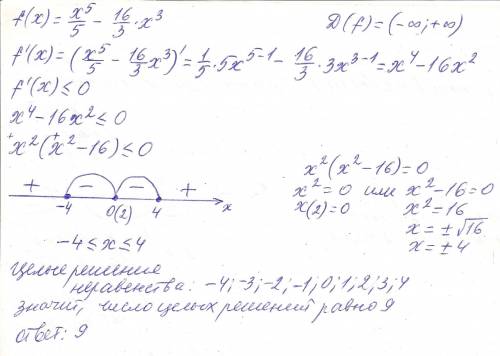 f(x) = x⁵/5 - 16/3 · x³
D(f) = (-∞; +∞)
f'(x) = (x⁵/5 - 16/3 x³)' = 1/5 · 5x⁵⁻¹ - 16/3 · 3x³⁻¹ = x⁴ - 16x²
f'(x) ≤ 0
x⁴ - 16x² ≤ 0
+ +
x²(x² - 16) ≤ 0
x²(x² - 16) = 0
x² = 0 или x² - 16 = 0
x(2) = 0 x² = 16
x = ± √16
x = ± 4
+ - - +
-4 0(2) 4 x
-4 ≤ x ≤ 4
Целые решение
неравенства: -4; -3; -2; -1; 0; 1; 2; 3; 4
значит, число целых решений равно 9
ответ: 9